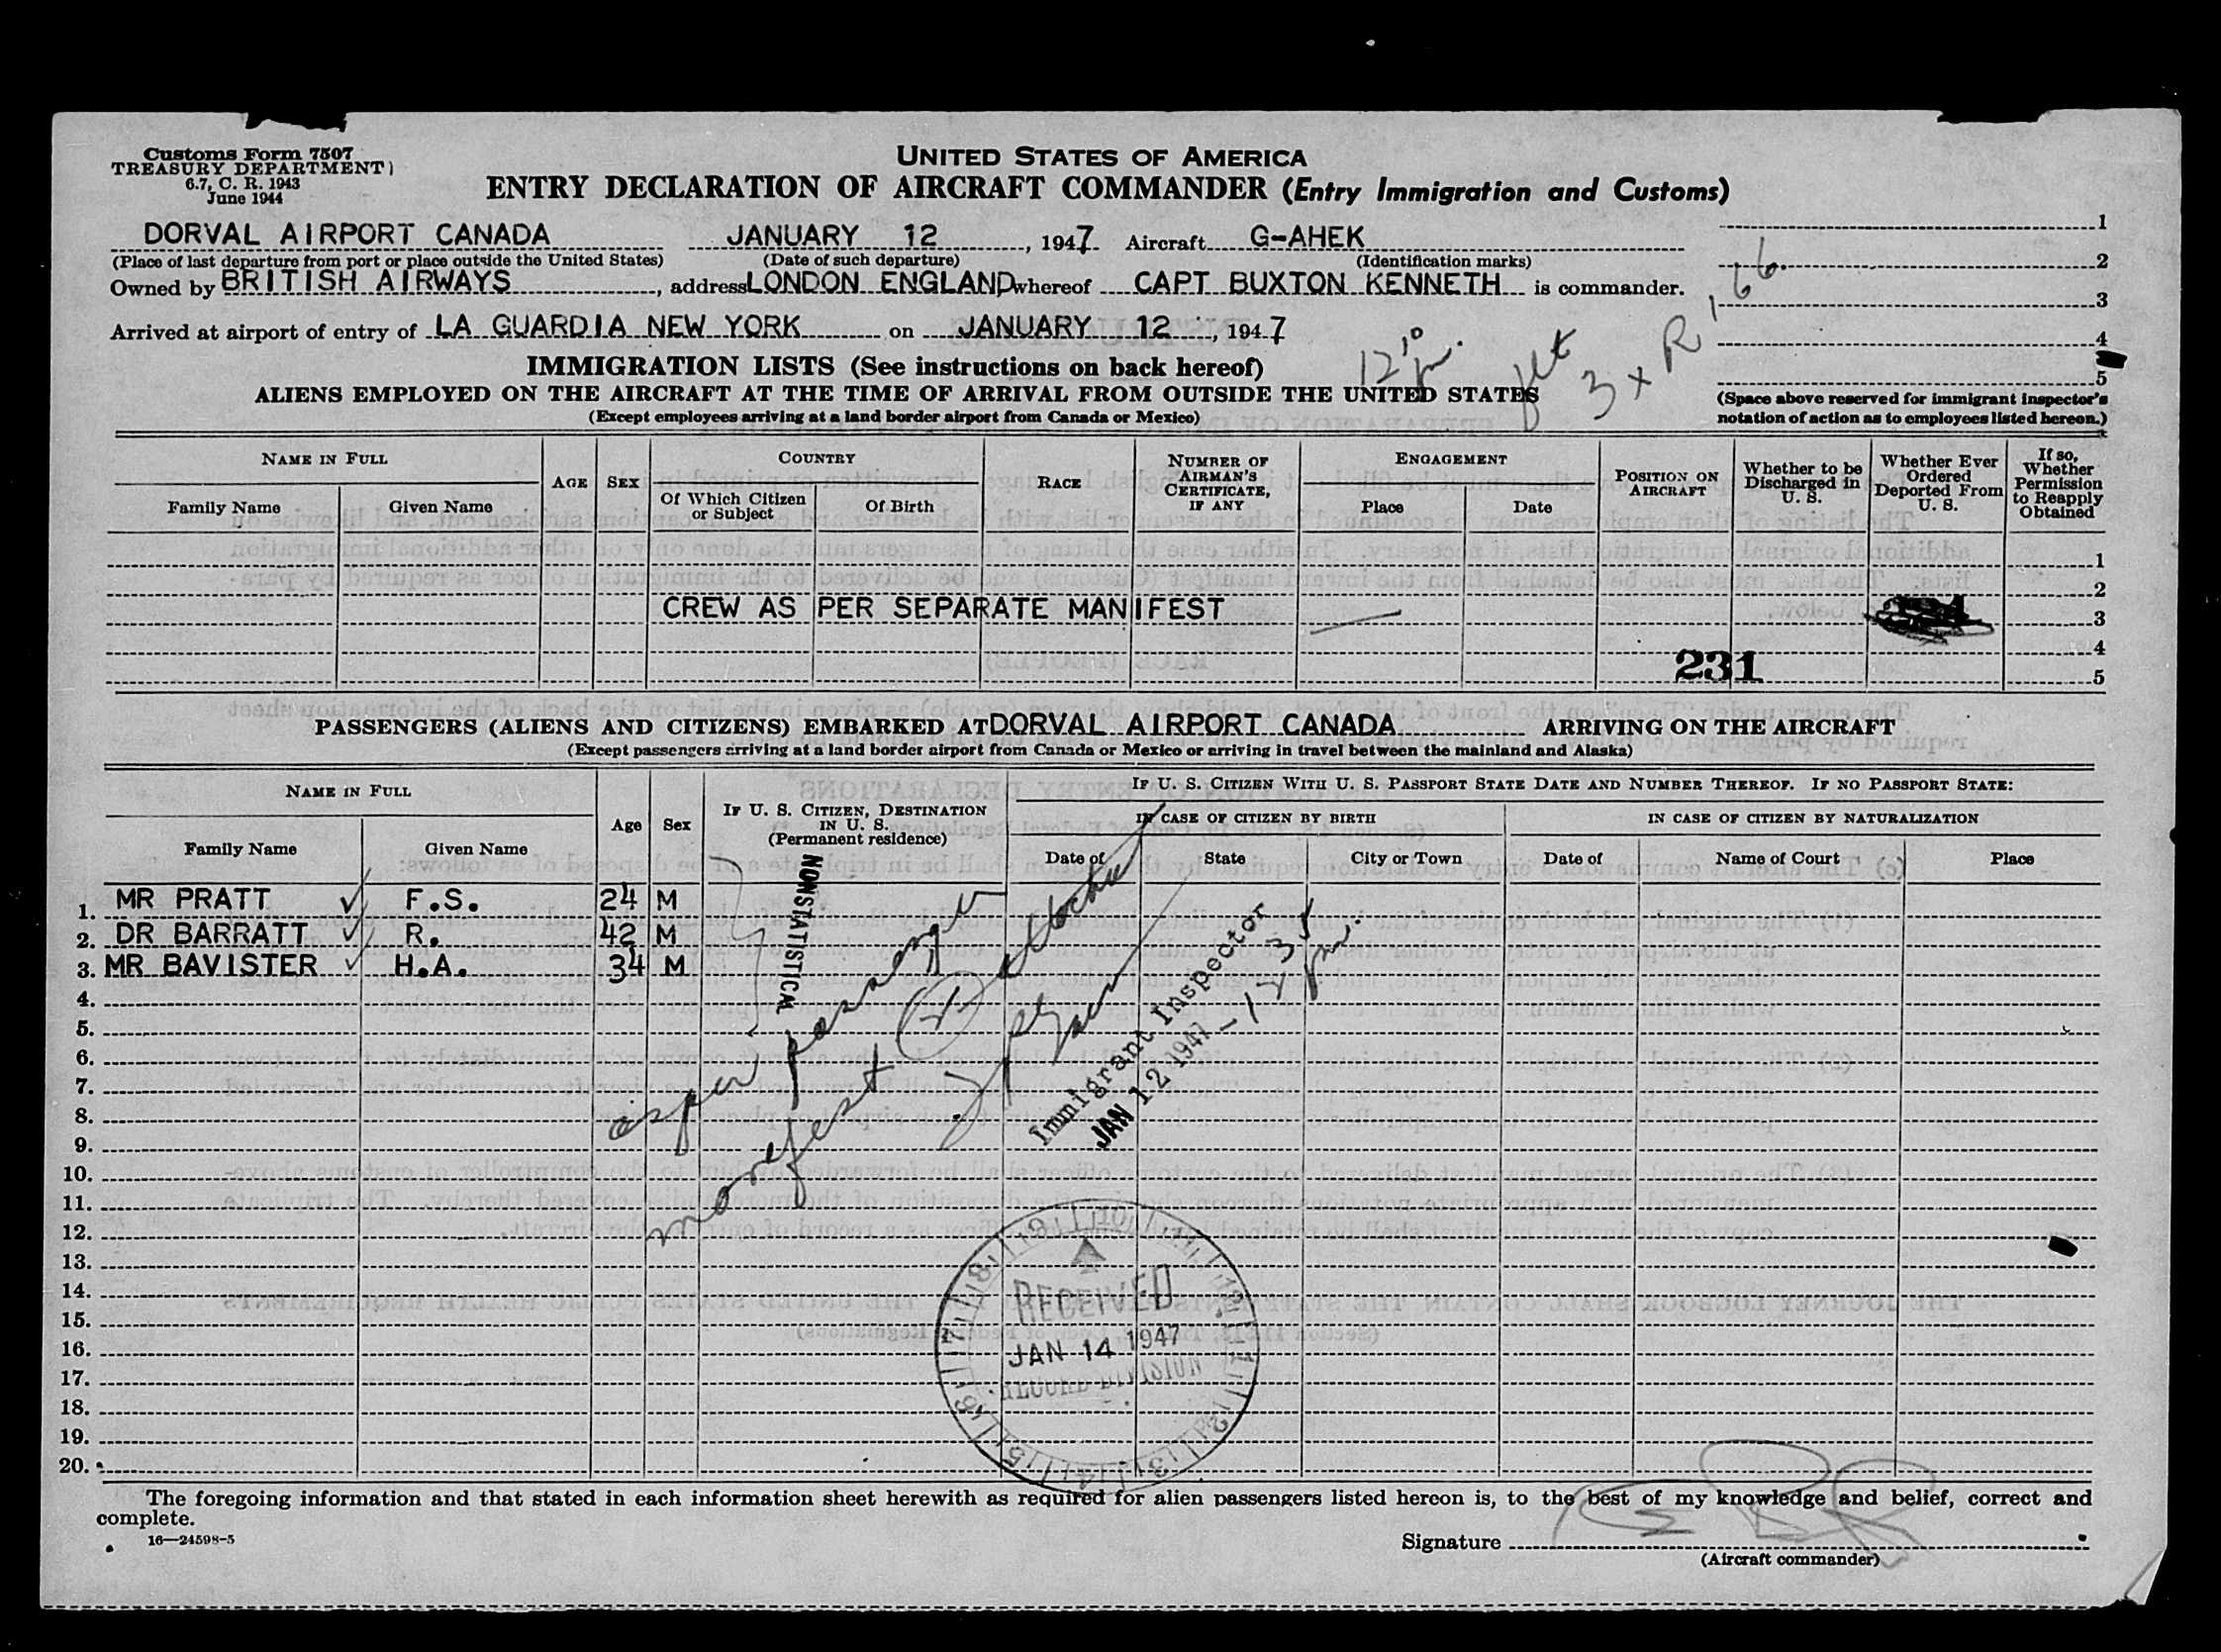 Customs Form 7507
TREASURY DEPARTMENT)
6.7, C. R. 1943
June 1944
UNITED STATES OF AMERICA
ENTRY DECLARATION OF AIRCRAFT COMMANDER (Entry Immigration and Customs)
DORVAL AIRPORT CANADA JANUARY 12, 1947 Aircraft G-AHEK
(Place of last departure from port or place outside the United States) (Date of such departure) (Identification marks)
Owned by BRITISH AIRWAYS, address LONDON ENGLAND whereof CAPT BUXTON KENNETH is commander.
Arrived at airport of entry of LA GUARDIA NEW YORK on JANUARY 12, 1947
1
2
3
4
5
3 x R
IMMIGRATION LISTS (See instructions on back hereof)
ALIENS EMPLOYED ON THE AIRCRAFT AT THE TIME OF ARRIVAL FROM OUTSIDE THE UNITED STATES
(Except employees arriving at a land border airport from Canada or Mexico)
(Space above reserved for immigrant inspector's
notation of action as to employees listed hereon.)
NAME IN FULL
Family Name
Given Name
AGE
SEX
COUNTRY
Of Which Citizen
or Subject
Of Birth
RACE
NUMBER OF
AIRMAN'S
CERTIFICATE,
IF ANY
ENGAGEMENT
Place
Date
POSITION ON
AIRCRAFT
Whether to be
Discharged in
U. S.
Whether Ever
Ordered
Deported From
U. S.
If so,
Whether
Permission
to Reapply
Obtained
1
2
CREW AS PER SEPARATE MANIFEST 3
4
231
5
PASSENGERS (ALIENS AND CITIZENS) EMBARKED AT DORVAL AIRPORT CANADA ARRIVING ON THE AIRCRAFT
(Except passengers arriving at a land border airport from Canada or Mexico or arriving in travel between the mainland and Alaska)
NAME IN FULL
Family Name
Given Name
Age
Sex
IF U. S. CITIZEN, DESTINATION
IN U. S.
(Permanent residence)
IF U. S. CITIZEN WITH U. S. PASSPORT STATE DATE AND NUMBER THEREOF. IF NO PASSPORT STATE:
IN CASE OF CITIZEN BY BIRTH
Date of
State
City or Town
IN CASE OF CITIZEN BY NATURALIZATION
Date of
Name of Court
Place
1. MR PRATT F.S. 24 M
2. DR BARRATT R. 42 M
3. MR BAVISTER H.A. 34 M
4.
5.
6.
7.
8.
9.
10.
11.
12.
13.
14.
15.
16.
17.
18.
19.
20.
NONSTATISTICAL
as per passenger
manifest attached
Immigrant Inspector
JAN 12 1947
RECEIVED
JAN 14 1947
RECORD DIVISION
The foregoing information and that stated in each information sheet herewith as required for alien passengers listed hereon is, to the best of my knowledge and belief, correct and
complete.
16—24598-5
Signature
(Aircraft commander)